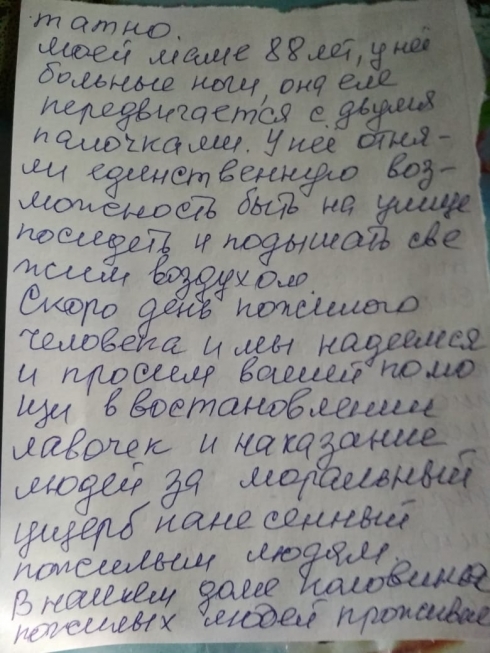 татно.
Моей маме 88 лет, у неё
больные ноги, она еле
передвигается с двумя
палочками. У неё отня-
ли единственную воз-
можность быть на улице
посидеть и подышать све
жим воздухом.
Скоро день пожилого
человека и мы надеемся
и просим вашей помо
щи в востановлении
лавочек и наказание
людей за моральный
ущерб нанесенный
пожилым людям.
В нашем доме половина
пожилых людей проживае